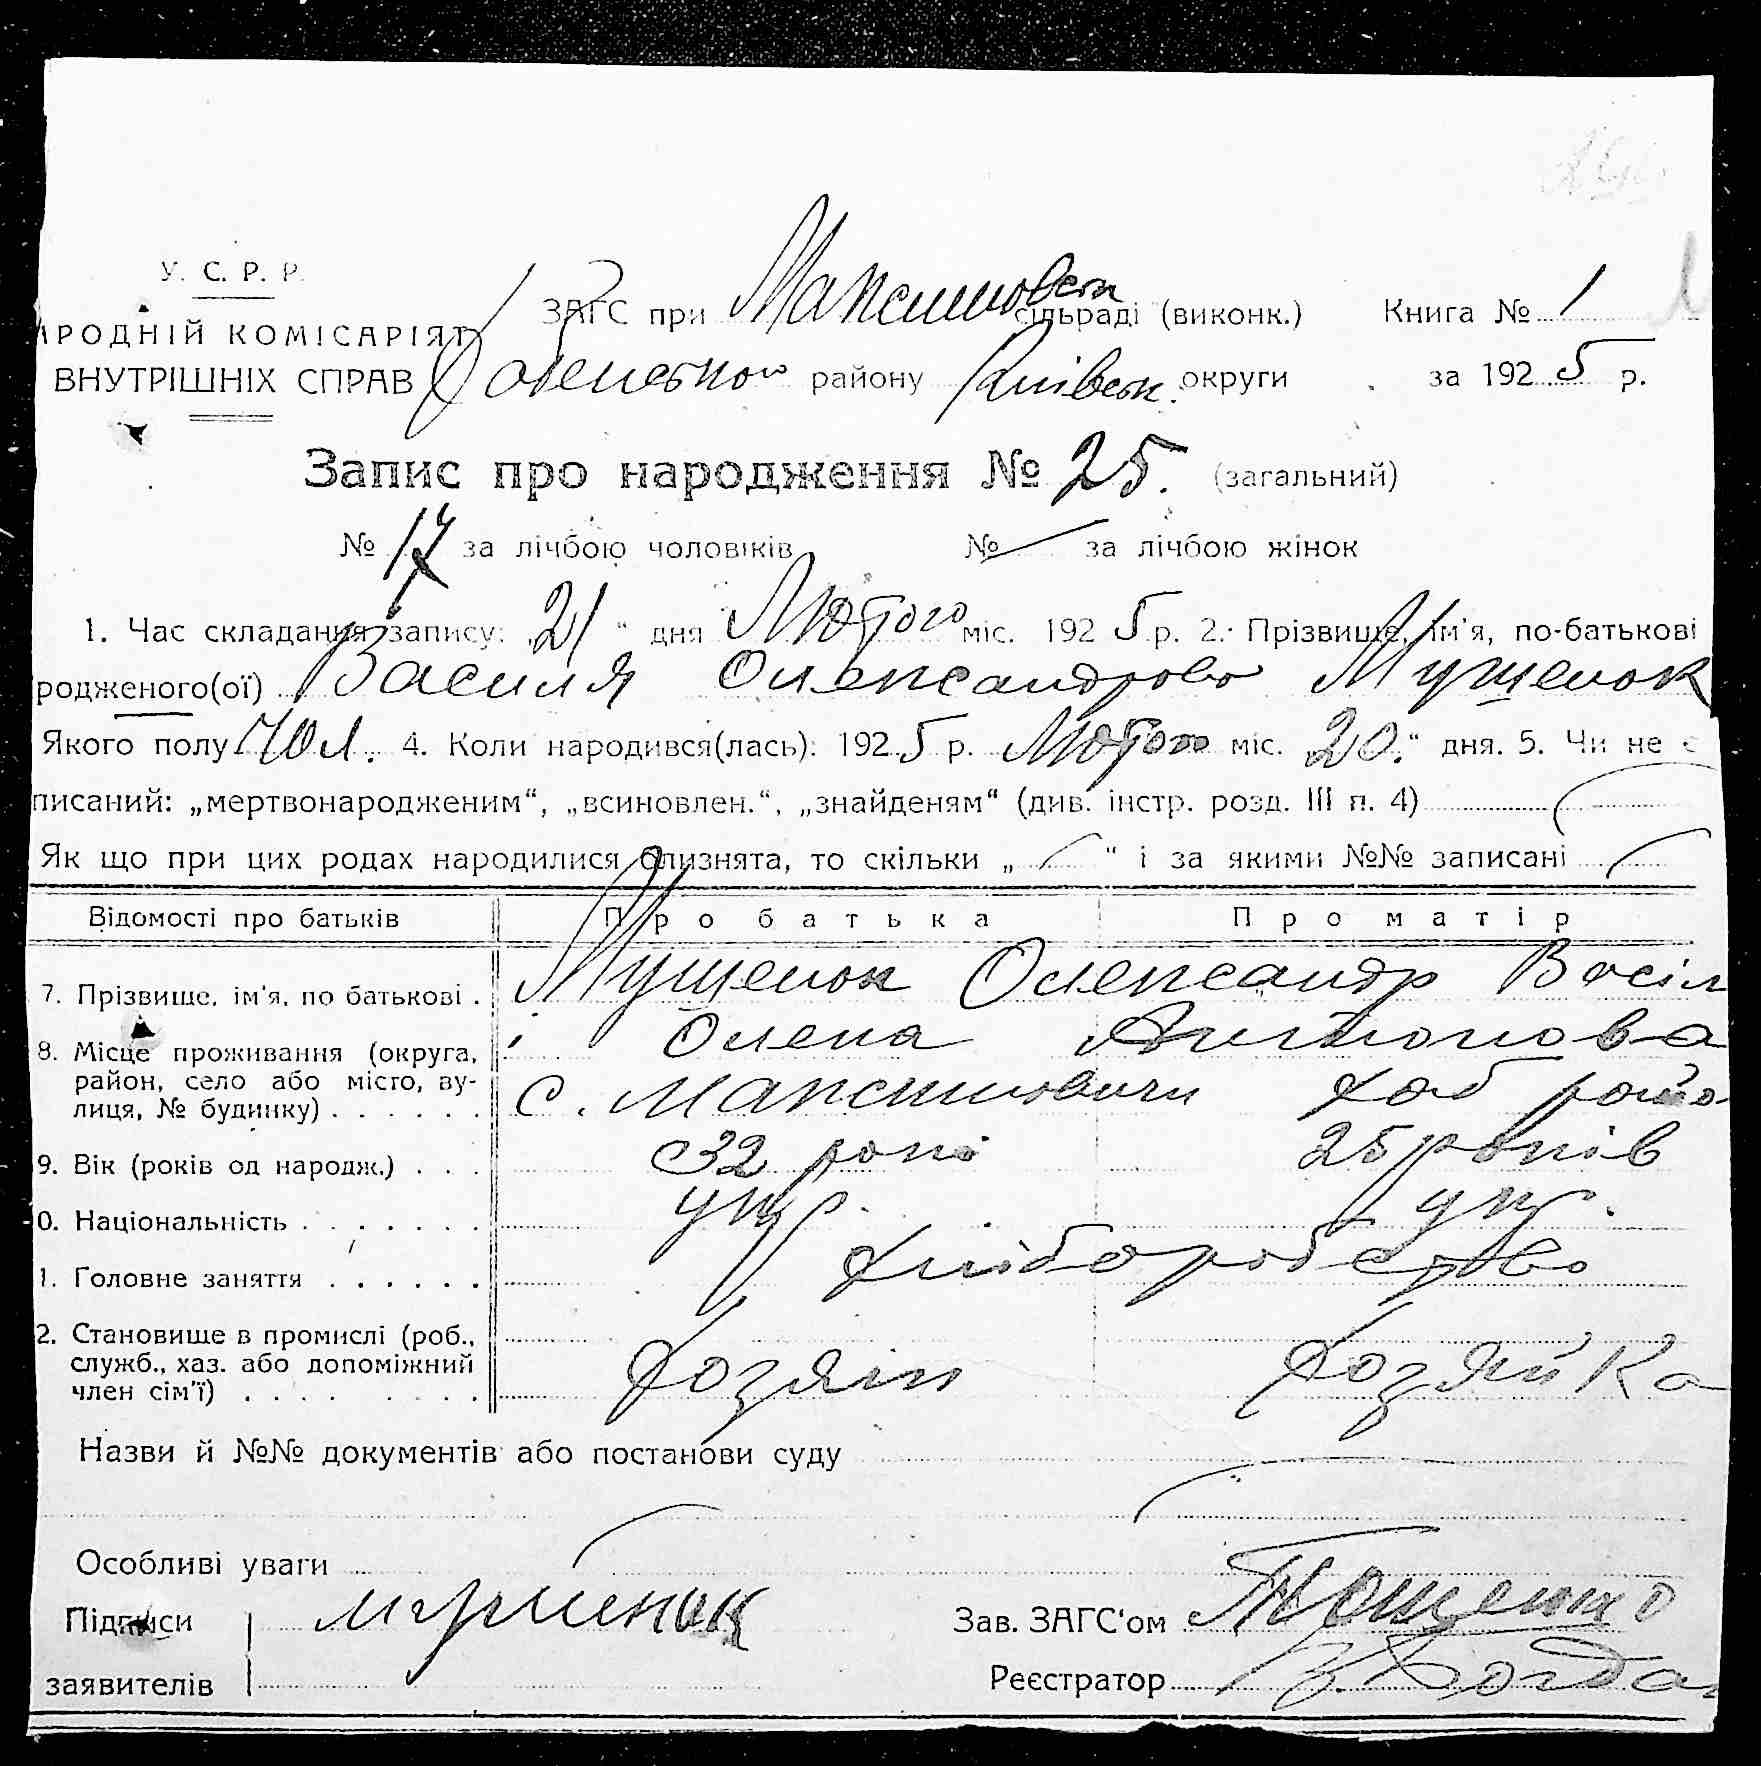 У. С. Р. Р.
АРОДНІЙ КОМІСАРІЯТ
ВНУТРІШНІХ СПРАВ
ЗАГС при Максимовськ сільраді (виконк.) Книга № 1
району Київськ. округи за 1925 р.
Запис про народження № 25. (загальний)
№ 17 за лічбою чоловіків № за лічбою жінок
1. Час складання запису: „21“ дня Лютого міс. 1925 р. 2. Прізвище, ім'я, по-батькові
родженого(ої) Василя Олександрова Мущенок
Якого полу Чол. 4. Коли народився(лась): 1925 р. Лютого міс. „20.“ дня. 5. Чи не є
писаний: „мертвонародженим“, „всиновлен.“, „знайденям“ (див. інстр. розд. III п. 4)
Як що при цих родах народилися близнята, то скільки „ “ і за якими №№ записані
Відомості про батьків Про батька Про матір
7. Прізвище, ім'я, по батькові . Мущенок Олександр Васіл
і Олена Антонова
8. Місце проживання (округа, район, село або місто, вулиця, № будинку) . . . . . . с. Максимовичи Хаб
9. Вік (років од народж.) . . . 32 рокі 25 років
0. Національність . . . . . . . укр. укр.
1. Головне заняття . . . . . . Хліборобство
2. Становище в промислі (роб.,
служб., хаз. або допоміжний
член сім'ї) . . . . . . . . Хозяін Хозяйка
Назви й №№ документів або постанови суду
Особливі уваги
Підписи
заявителів
Зав. ЗАГС'ом
Реєстратор